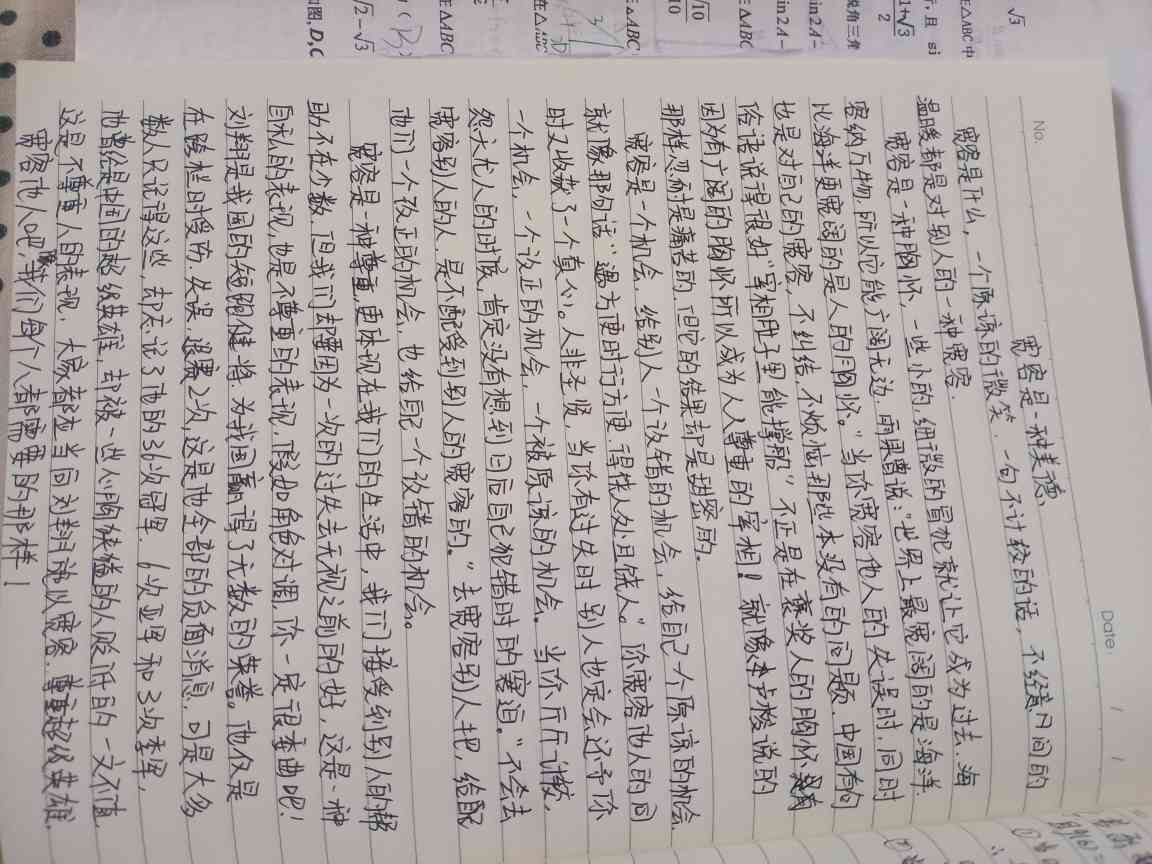 No.
Date:
宽容是一种美德
宽容是什么,一个原谅的微笑,一句不计较的话,不经意间的
温暖都是对别人的一种宽容.
宽容是一种胸怀,一些小的,细微的冒犯就让它成为过去,海
容纳万物,所以它能广阔无边,雨果曾说:"世界上最宽阔的是海洋.
比海洋更宽阔的是人的胸怀。"当你宽容他人的失误时,同时
也是对自己的宽容,不纠结,不烦恼那些本没有的问题,中国有句
俗语说得很好"宰相肚子里能撑船"不正是在褒奖人的胸怀
因为有广阔的胸怀所以成为人人尊重的宰相!就像卢梭说的
那样忍耐是痛苦的,但它的结果却是甜蜜的。
宽容是一个机会,给别人一个改错的机会,给自己一个原谅的机会.
就像那句话"遇方便时行方便,得饶人处且饶人。"你宽容他人的同
时又收获了一个真心。人非圣贤,当你有过失时别人也定会还予你
一个机会,一个改正的机会,一个被原谅的机会。当你斤斤计较,
怨天尤人的时候,肯定没有想到日后自己犯错时的窘迫。"不会去
宽容别人的人,是不配受到别人的宽容的。"去宽容别人把,给
他们一个改正的机会,也给自己一个改错的机会。
宽容是一种尊重,更体现在我们的生活中,我们接受到别人的帮
助不在少数,但我们却因为一次的过失去无视之前的好,这是一种
自私的表现,也是不尊重的表现,假如角色对调,你一定很委曲吧!
刘翔是我国的短跑健将,为我国赢得了无数的荣誉。他仅是
在跨栏时受伤,失误,退赛2次,这是他全部的负面消息,可是大多
数人只记得这些,却忘记了他的36次冠军,6次亚军和3次季军,
他曾经是中国的超级英雄,却被一些心胸狭隘的人贬低的一文不值.
这是不尊重人的表现,大家都应当向刘翔施以宽容,尊重超级英雄.
宽容他人吧,我们每个人都需要的那样!